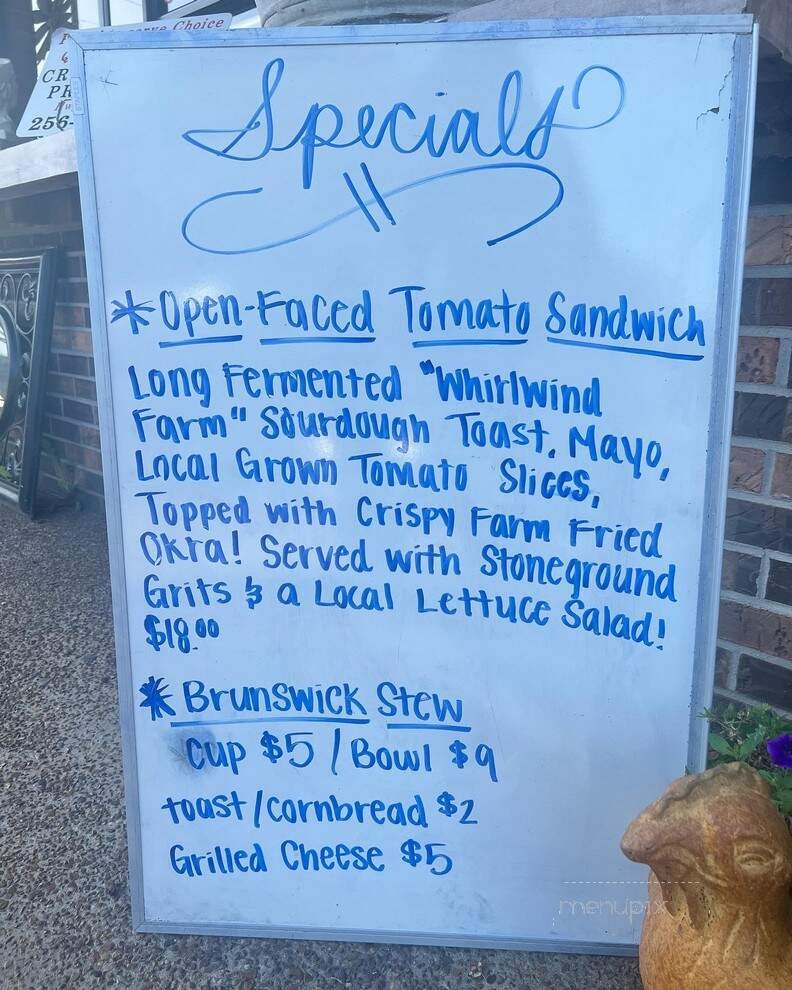 Choice
CR
PR
256-
Specials
*Open-Faced Tomato Sandwich
Long Fermented "Whirlwind
Farm" Sourdough Toast, Mayo,
Local Grown Tomato Slices,
Topped with Crispy Farm Fried
Okra! Served with Stoneground
Grits & a Local Lettuce Salad!
$18.00
*Brunswick Stew
Cup $5 / Bowl $9
toast/cornbread $2
Grilled Cheese $5
menupix